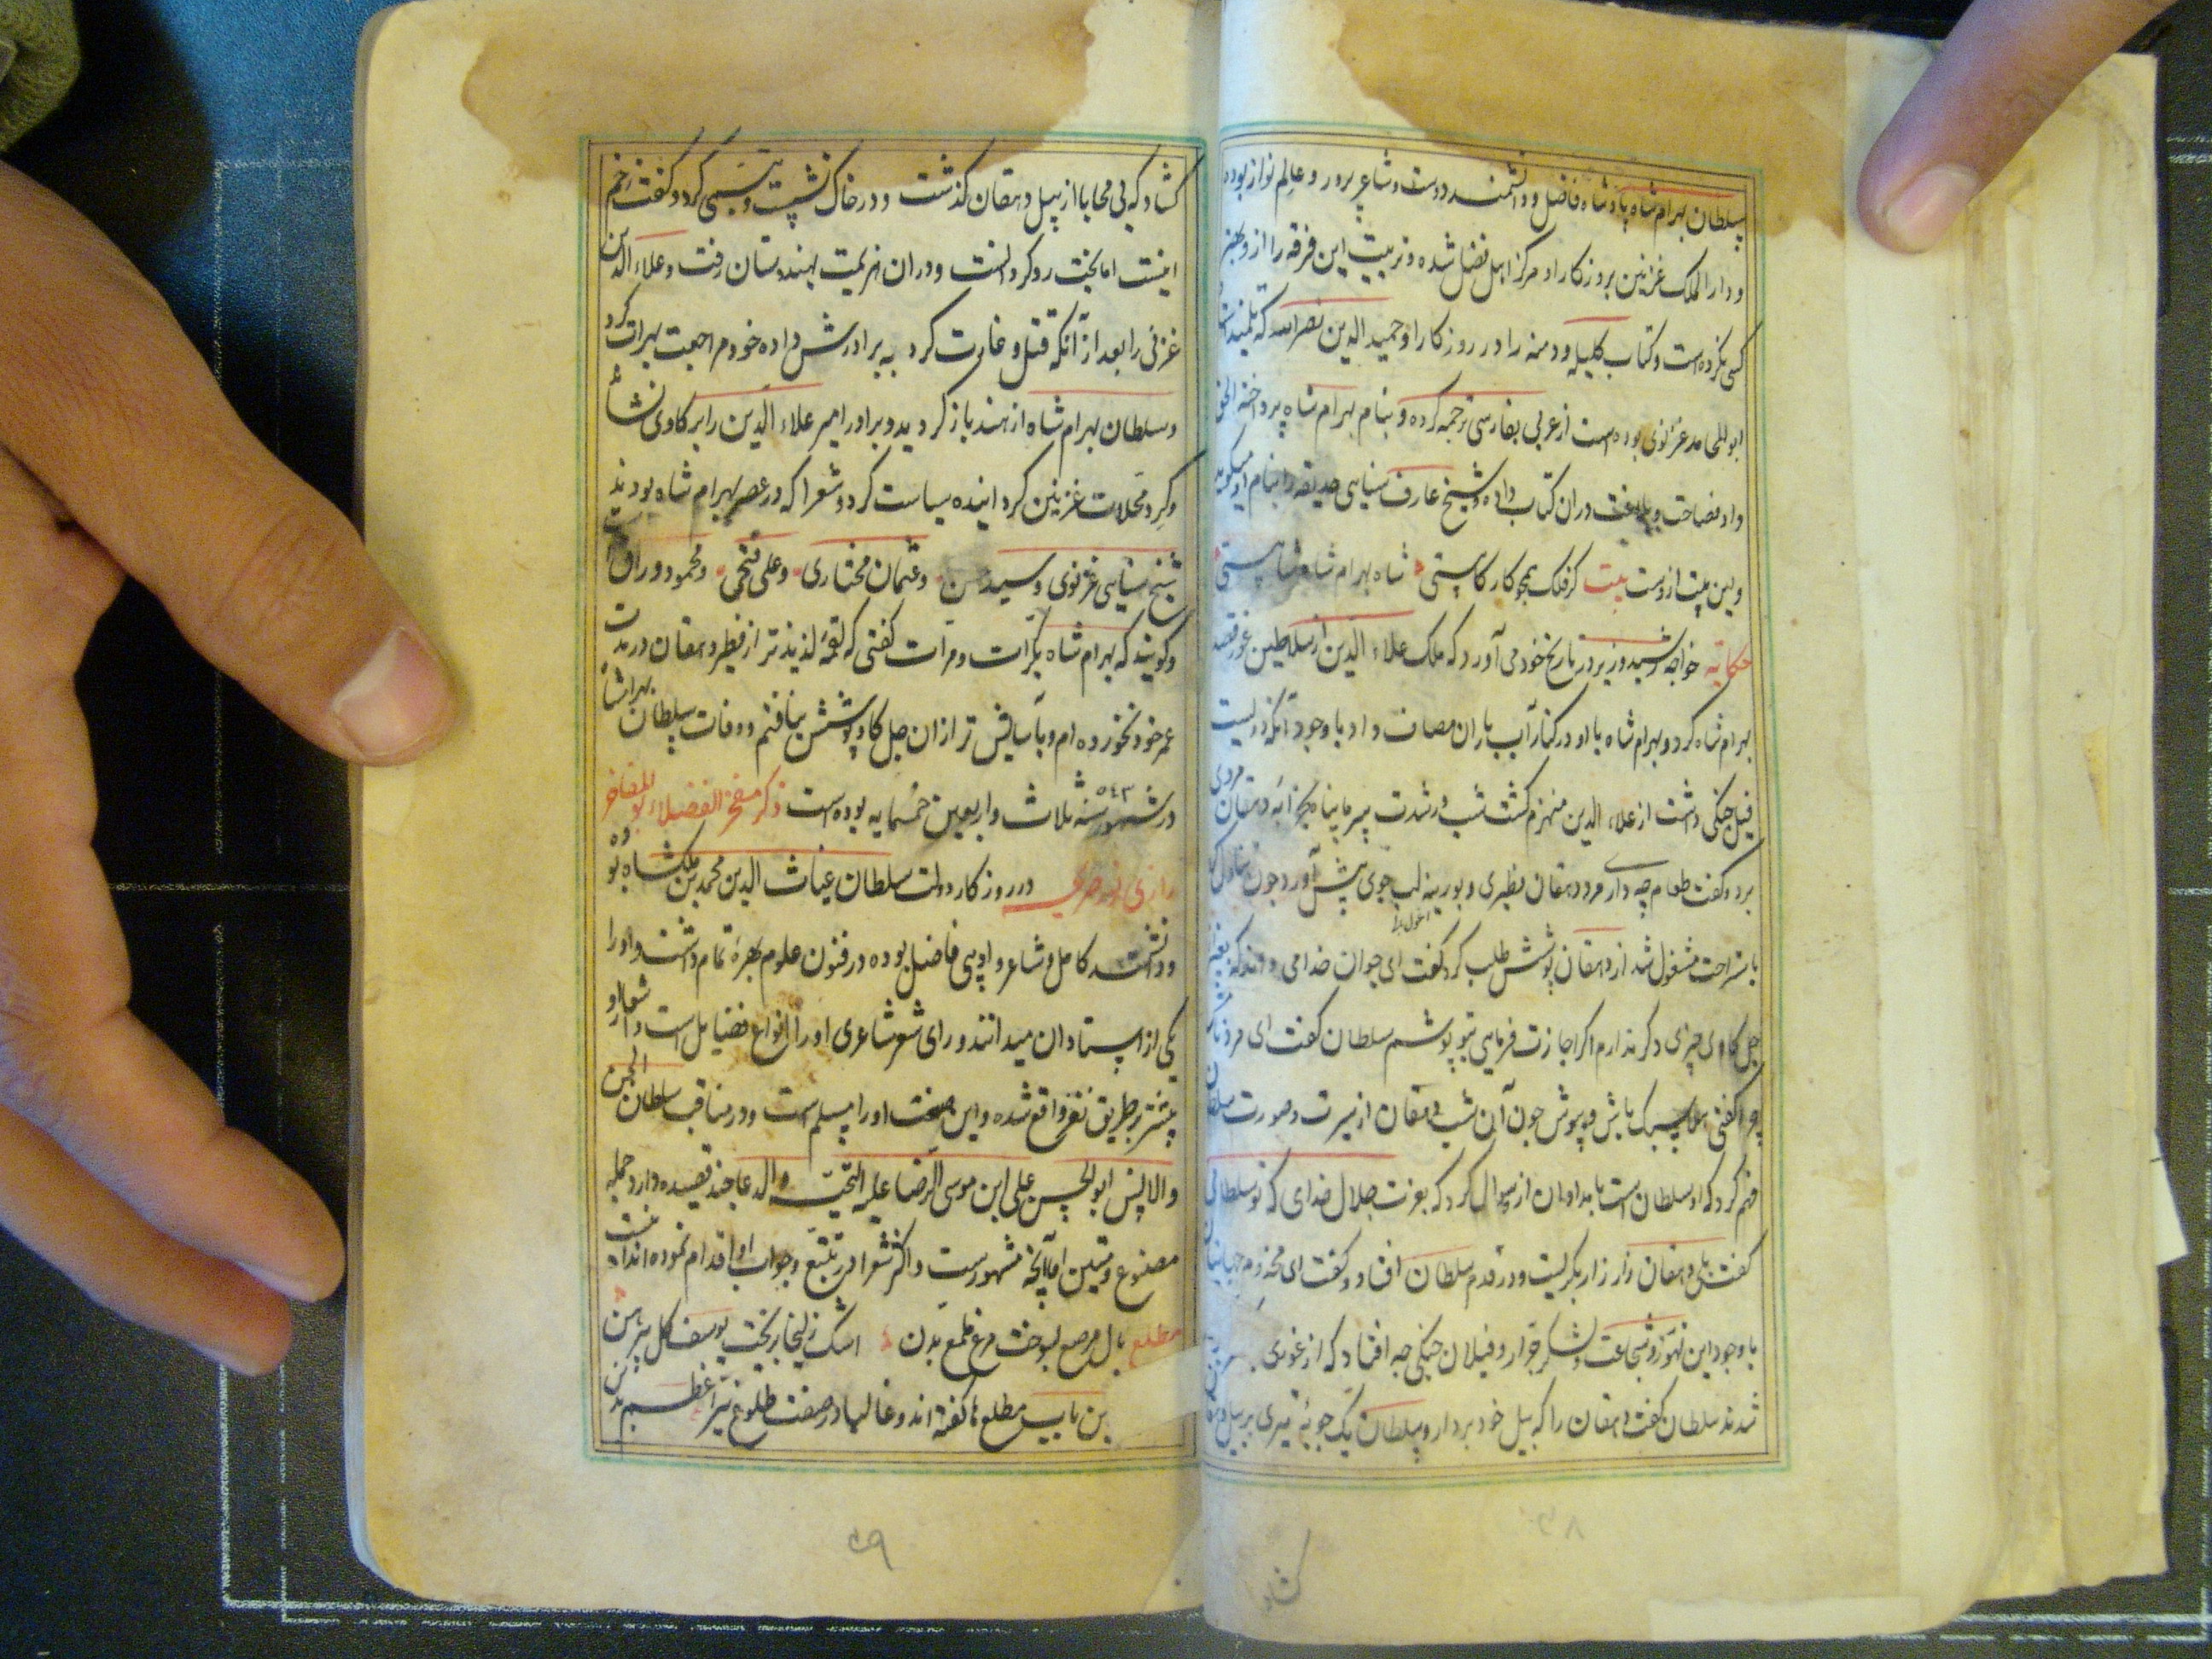 سلطان بهرام شاه پادشاه فاضل و دانشمند دوست و شاعر پرور و عالم نواز بوده
و دار الملک غزنین بروزگار او مرکز اهل فضل شده و تربیت این فرقه را از و بهتر
کسی نکرده است و کتاب کلیله و دمنه را در روزگار او حمید الدین نصر الله که تلمیذ
ابو المحامد غزنوی بوده است از عربی بفارسی ترجمه کرده و بنام بهرام شاه پرداخته الحق
و داد فصاحت و بلاغت دران کتاب داده و شیخ عارف سنایی حدیقه را بنام او میگوید
و این بیت ازوست بیت کر فلک همچو کار کاهستی شاه بهرام شاه شاهستی
حکایه خواجه رشید وزیر در تاریخ خود می آورد که ملک علاء الدین از سلاطین غور قصد
بهرام شاه کرد و بهرام شاه با او در کنار آب باران مصاف داد با وجود آنکه دویست
فیل جنکی داشت از علاء الدین منهزم کشت شب در شدت سرما پناه بخرابه دهقان مردی
برد و کفت طعام چه داری مرد دهقان فطیری و بورینه لب جوی پیش آورد چون
باستراحت مشغول شد از دهقان پوشش طلب کرد کفت ای جوان خدا می داند که بغیر
جل کاوی چیزی دکر ندارم اکر اجازت فرمایی بتو پوشم سلطان کفت ای مرد
چرا کفتی سبک باش و بپوش چون آن شب دهقان از سیرت و صورت سلطان
فهم کرد که او سلطان است بامدادان از سوال کرد که بعزت جلال خدای که تو سلطانی
کفت بلی دهقان زار زار بکریست و در قدم سلطان افتاد و کفت ای مخدوم جهانیان
با وجود این تهور و شجاعت و لشکر جرار و فیلان جنکی چه افتاد که از غوری
شدند سلطان کفت دهقان را که بیل خود بردار و سلطان یک چوبه تیری بر بیل
کشاد
کشاد که بی محابا از بیل دهقان کذشت و در خاک نشست و تبسمی کرد و کفت زخم
اینست اما بخت رو کردانست و دران هزیمت بهندوستان رفت و علاء الدین
غزنی را بعد از آنکه قتل و غارت کرد به برادرش داده خود مراجعت بهرات کرد
و سلطان بهرام شاه از هند باز کردید و برادر امیر علاء الدین را بر کاوی نشاند
و کرد محلات غزنین کردانیده سیاست کرد و شعرا که در عصر بهرام شاه بودند
شیخ سنایی غزنوی و سید حسن و عثمان مختاری و علی فتحی و محمود وراق
و کویند که بهرام شاه بکرات و مرات کفتی که لقمه لذیذتر از فطیر دهقان در مدت
عمر خود نخورده ام و بآسایش تر ازان جل کاو پوشش نیافتم و وفات سلطان بهرامشاه
در شهور سنه ۵۴۳ ثلاث و اربعین خمسمایه بوده است ذکر مفخر الفضلاء ابو المفاخر
رازی در روزکار دولت سلطان غیاث الدین محمد بن ملکشاه بوده
و دانشمند کامل و شاعر و ادیبی فاضل بوده در فنون علوم بهره تمام داشت و او را
یکی از استادان میدانند و رای شعر شاعری او را انواع فضایل است و اشعار او
بیشتر بر طریق لغز واقع شده و این صنعت او را مسلم است و در مناقب سلطان الجن
و الانس ابو الحسن علی ابن موسی الرضا علیه التحیه و الدعا چند قصیده دارد جمله
مصنوع و متین اما آنچه مشهورست و اکثر شعرا در تتبع و جواب او اقدام نموده اند اینست
مطلع بال مرصع بسوخت مرغ ملمع بدن اشک زلیخا بریخت یوسف کل پیرهن
مطلع ها کفته اند و غالبا در صفت طلوع نیر اعظم
۳۹
۳۸